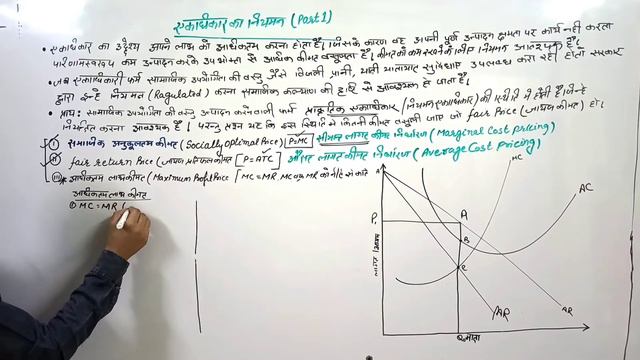 एकाधिकार का नियमन (Part 1)
• एकाधिकार का उद्देश्य अपने लाभ को अधिकतम करना होता है। जिसके कारण वह अपनी पूर्ण उत्पादन क्षमता पर कार्य नहीं करता
परिणामस्वरूप कम उत्पादन करके उपभोक्ता से अधिक कीमत वसूलता है। कीमत को कम रखने के लिए नियमन आवश्यक है।
• जब एकाधिकारी फर्म सामाजिक उपयोगिता की वस्तु जैसे बिजली पानी, यातायात सुविधाएं उपलब्ध करा रही हो तो सरकार
द्वारा इन्हे नियमन (Ragulated) करना सामाजिक कल्याण की दृष्टि से आवश्यक हो जाता है।
• प्रायः सामाजिक उपयोगिता की वस्तु उत्पादन करने वाली फर्म एकाधिकार की स्थिति में होती है। जिन्हे
नियमित करना आवश्यक है। परन्तु प्रश्न यह कि इस स्थिति में कितनी कीमत वसूली जाए जो fair Price (जायज कीमत) हो।
(I) सामाजिक अनुकूलतम कीमत (Socially optimal Price) [P=MC] सीमान्त लागत कीमत निर्धारण (Marginal Cost pricing)
(II) fair return Price (जायज प्रतिफल कीमत [P=ATC] औसत लागत कीमत निर्धारण (Average Cost pricing)
(III) अधिकतम लाभ कीमत (Maximum Profit Price [MC=MR. MC MR को नीचे से काटे
अधिकतम लाभ कीमत
① MC=MR (
A
MC
AC
P.
A
B
C
AR
AR
मात्रा